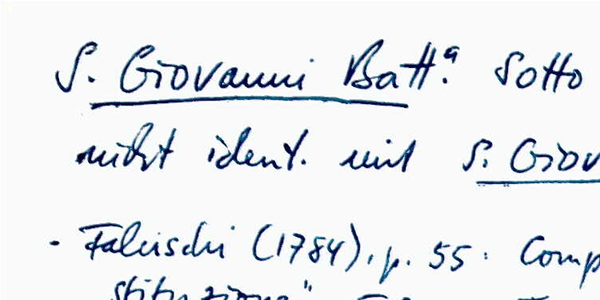 S. Giovanni Batt.ª Sotto
nicht ident. mit S. Giov
- Faluschi (1784), p. 55: Comp
stituzione"